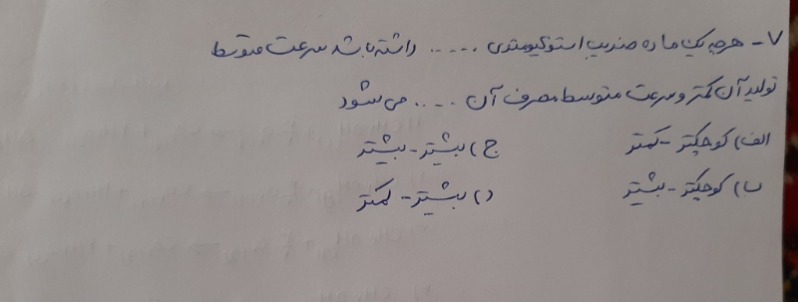 ۷- هرچه یک ماده ضریب استوکیومتری ..... داشته باشد سرعت متوسط
تولید آن کمتر و سرعت متوسط مصرف آن .... می شود
الف) کوچکتر - کمتر ج) بیشتر - بیشتر
ب) کوچکتر - بیشتر د) بیشتر - کمتر